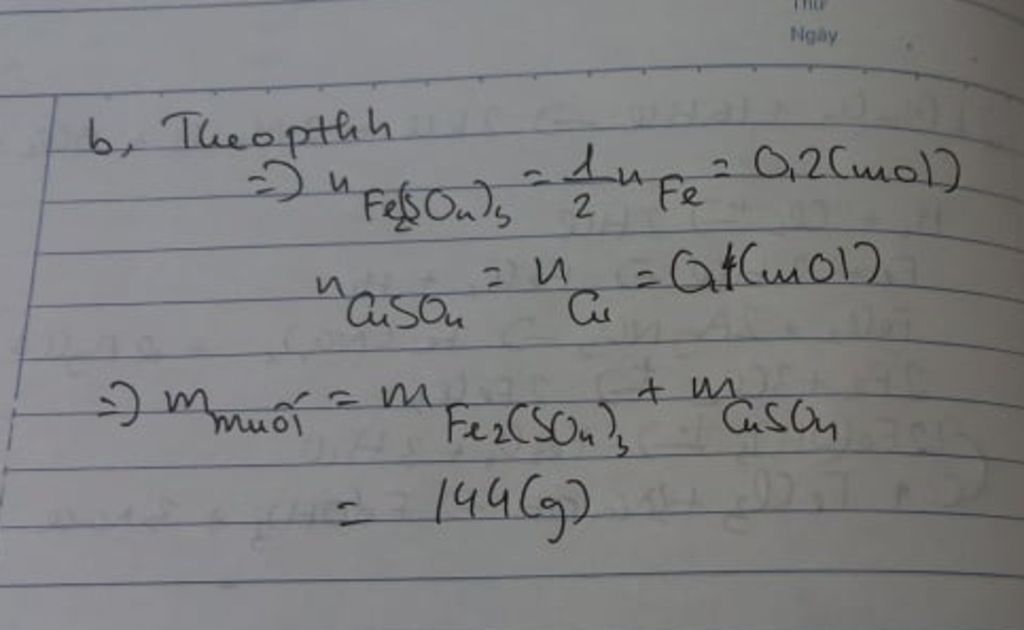 Thứ
Ngày
b, Theo pthh
=> n Fe2(SO4)3 = 1/2 n Fe = 0,2 (mol)
n CuSO4 = n Cu = 0,4 (mol)
=> m muối = m Fe2(SO4)3 + m CuSO4
= 144 (g)